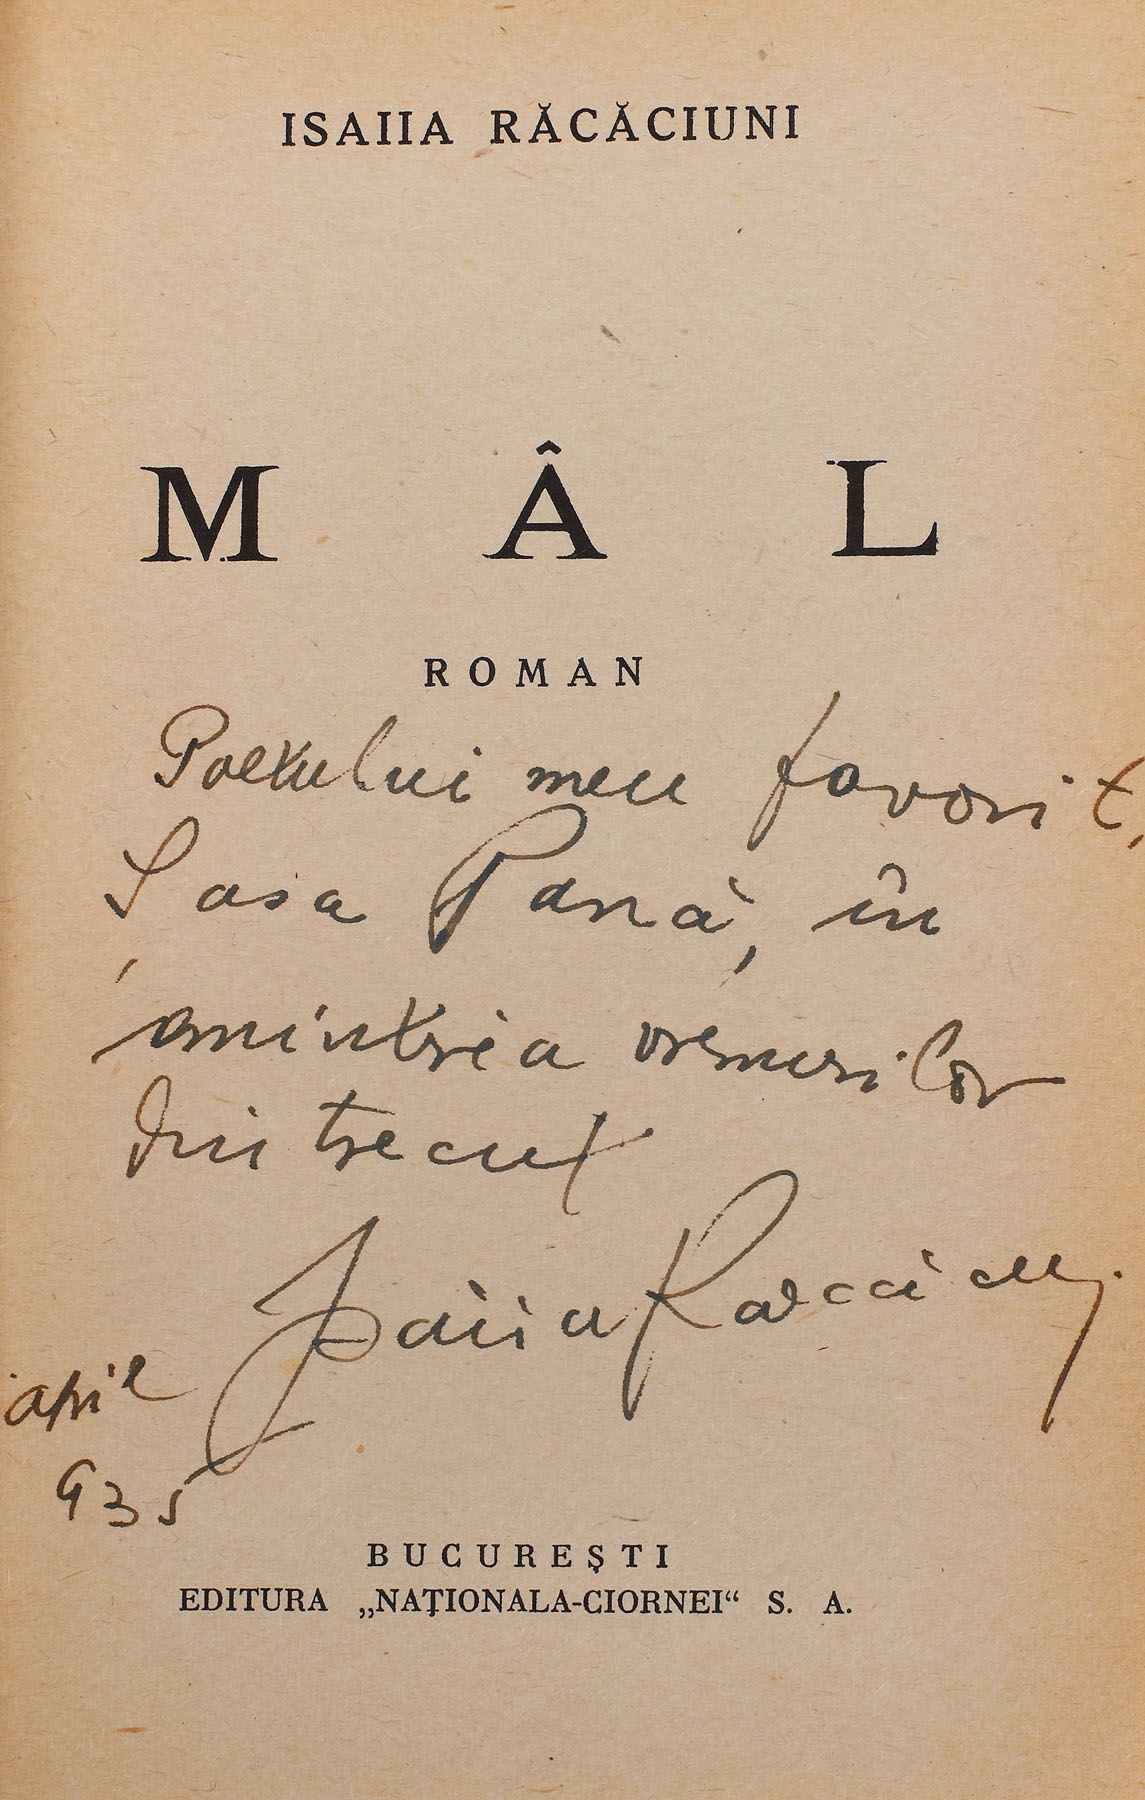 ISAIIA RĂCĂCIUNI
MÂL
ROMAN
Poetului meu favorit,
Sasa Pană, în
amintirea vremurilor
din trecut
Isaiia Răcăciuni
april
935
BUCUREŞTI
EDITURA „NAŢIONALA-CIORNEI“ S. A.